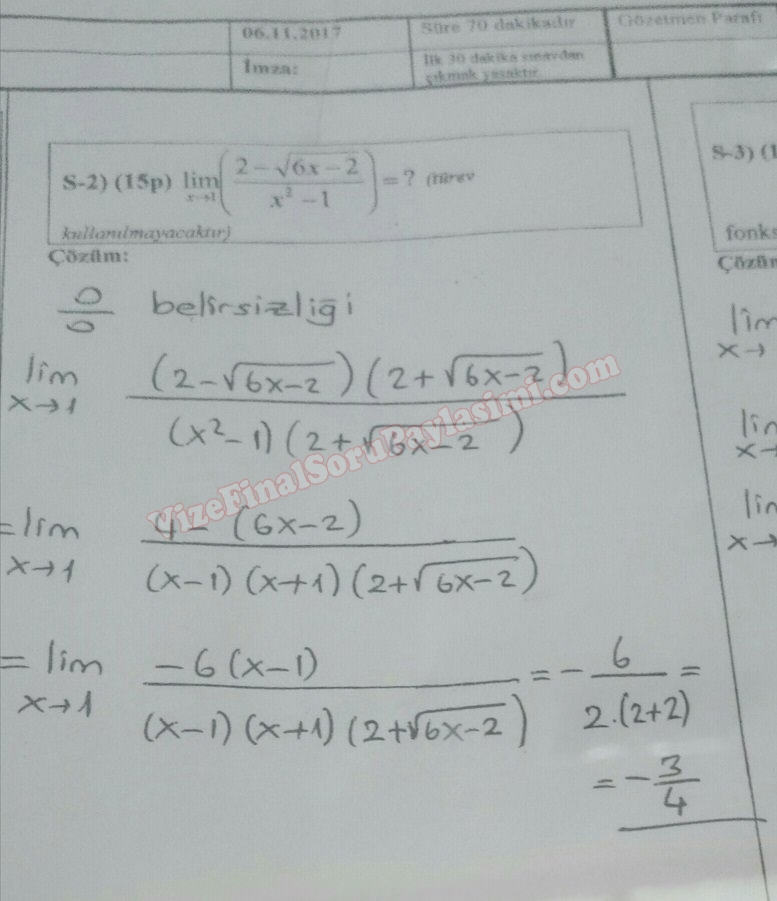 06.11.2017
Süre 70 dakikadır
Gözetmen Parafı
İmza:
İlk 30 dakika sınavdan
çıkmak yasaktır.
S-2) (15p) lim x→1 ( (2-√(6x-2)) / (x²-1) ) = ? (türev
kullanılmayacaktır)
Çözüm:
0/0 belirsizliği
lim x→1 (2-√(6x-2))(2+√(6x-2)) / (x²-1)(2+√(6x-2))
= lim x→1 4-(6x-2) / (x-1)(x+1)(2+√(6x-2))
= lim x→1 -6(x-1) / (x-1)(x+1)(2+√(6x-2)) = - 6 / 2.(2+2) =
= - 3/4
S-3) (1
fonks
Çözüm
lim
x→
lim
x→
lim
x→
VizeFinalSoruPaylasimi.com